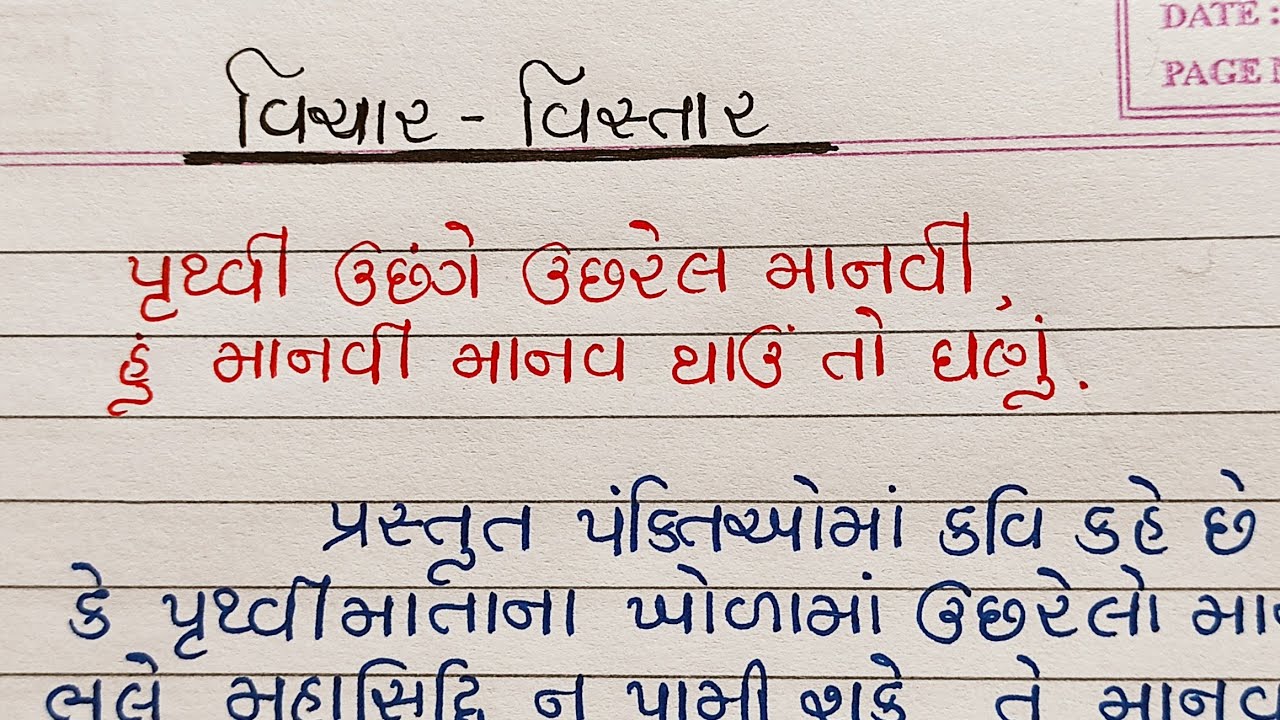 DATE :
PAGE
વિચાર - વિસ્તાર
પૃથ્વી ઉછંગે ઉછરેલ માનવી,
હું માનવી માનવ થાઉં તો ઘણું.
પ્રસ્તુત પંક્તિઓમાં કવિ કહે છે
કે પૃથ્વીમાતાના ખોળામાં ઉછરેલો
ભલે મહાસિદ્ધિ ન પામી શકે તે માનવ